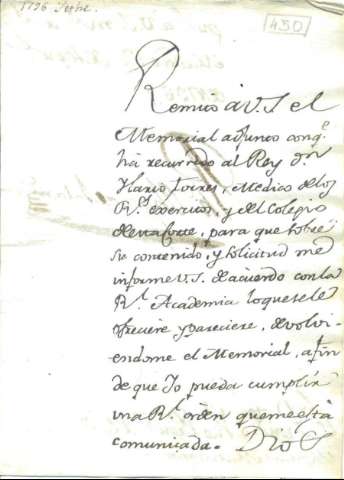 1796 Setre.
450
Remito a V.S el
Memorial adjunto conq.e
ha recurrido al Rey Dn
Ylario Torres, Medico de los
Rs. exercitos, y del Colegio
de esta Corte, para que sobre
su contenido, y solicitud me
informe V.S. de acuerdo con la
Rl. Academia lo que se le
ofreciere y pareciere, devolvi-
endome el Memorial, a fin
de que Yo pueda cumplir
una Rl. orden que me está
comunicada. Dios